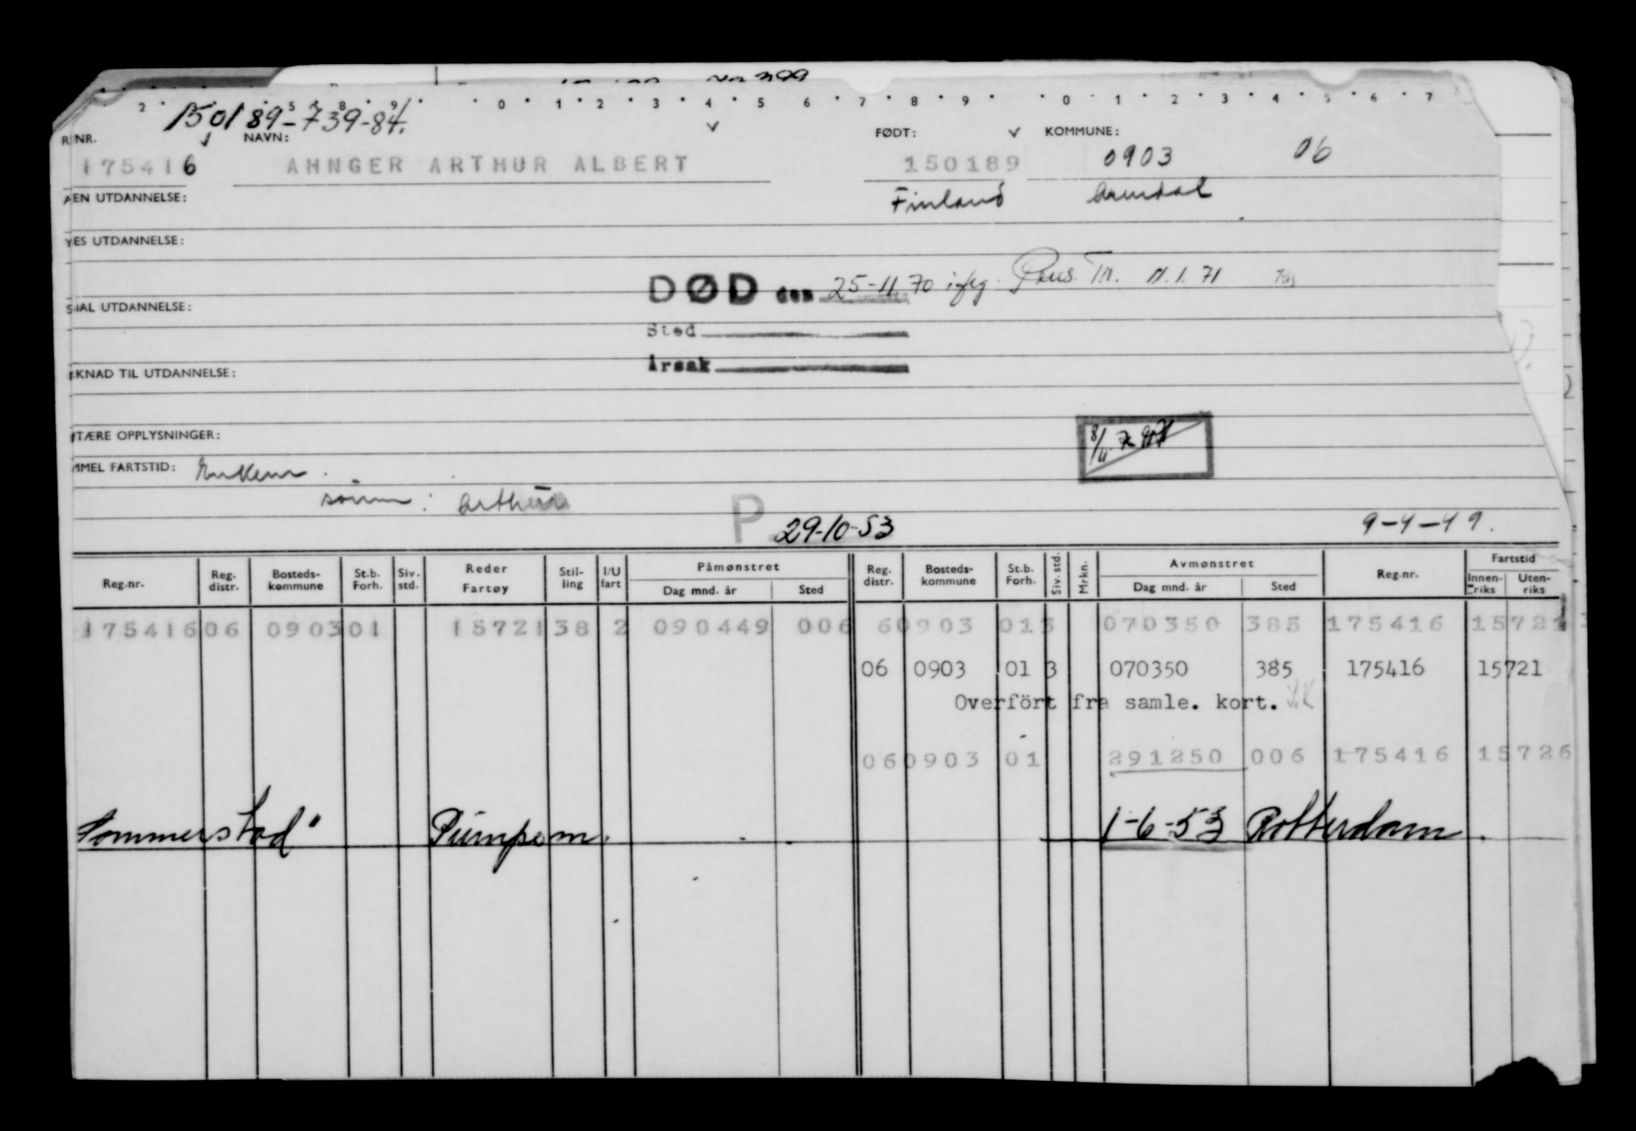 2 5 8 9 0 1 2 3 4 5 6 7 8 9 0 1 2 3 4 5 6 7
150189-73984.
R NR. NAVN: FØDT: KOMMUNE:
175416 AHNGER ARTHUR ALBERT 150189 0903 06
EN UTDANNELSE: Finland Arendal
YES UTDANNELSE:
DØD den 25-11 70 iflg. Pens. Tr. 11.1.71
IAL UTDANNELSE:
Sted
Årsak
KNAD TIL UTDANNELSE:
TÆRE OPPLYSNINGER:
MMEL FARTSTID: Enkem
sønn: Arthur
P 29-10-53 9-4-49.
Reg.nr. Reg. distr. Bosteds-kommune St.b. Forh. Siv. std. Reder Fartøy Stil-ling I/U fart Påmønstret Dag mnd. år Sted Reg. distr. Bosteds-kommune St.b. Forh. Siv. std. Mrkn. Avmønstret Dag mnd. år Sted Reg.nr. Fartstid Innen-riks Uten-riks
175416 06 0903 01 15721 38 2 090449 006 60903 013 070350 385 175416 15721
06 0903 01 3 070350 385 175416 15721
Overfört fra samle. kort.
060903 01 291250 006 175416 15726
Sommerstad" Pumpem. 1-6-53 Rotterdam.